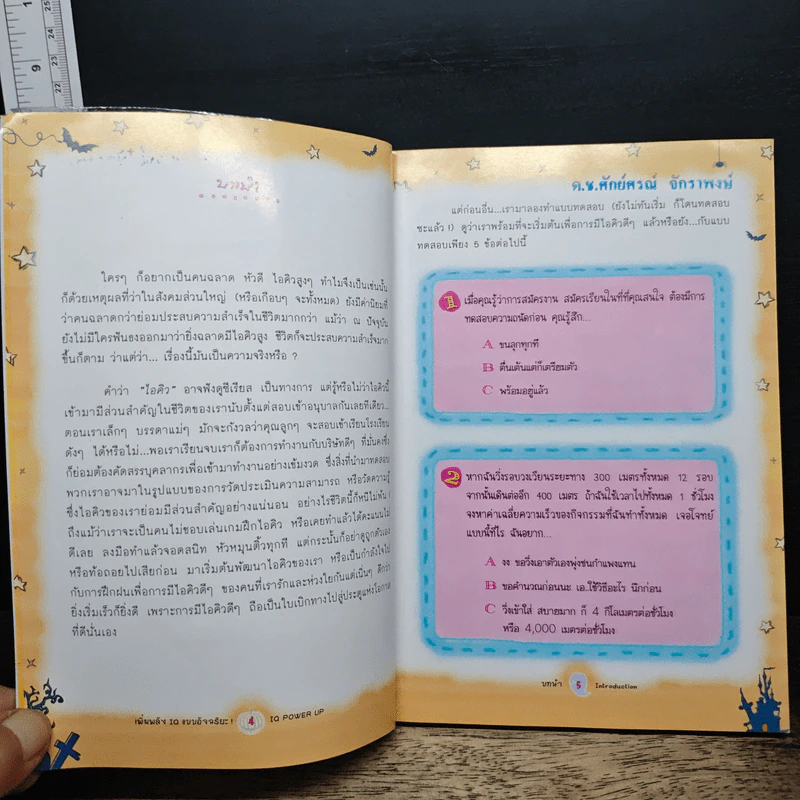 9
22
23
24
25
บทนำ
ใครๆ ก็อยากเป็นคนฉลาด หัวดี ไอคิวสูงๆ ทำไมจึงเป็นเช่นนั้น
ก็ด้วยเหตุผลที่ว่าในสังคมส่วนใหญ่ (หรือเกือบๆ จะทั้งหมด) ยังมีค่านิยมที่
ว่าคนฉลาดกว่าย่อมประสบความสำเร็จในชีวิตมากกว่า แม้ว่า ณ ปัจจุบัน
ยังไม่มีใครฟันธงออกมาว่ายิ่งฉลาดมีไอคิวสูง ชีวิตก็จะประสบความสำเร็จมาก
ขึ้นก็ตาม ว่าแต่ว่า... เรื่องนี้มันเป็นความจริงหรือ ?
คำว่า "ไอคิว" อาจฟังดูซีเรียส เป็นทางการ แต่รู้หรือไม่ว่าไอคิวนี้
เข้ามามีส่วนสำคัญในชีวิตของเรานับตั้งแต่สอบเข้าอนุบาลกันเลยทีเดียว...
ตอนเราเล็กๆ บรรดาแม่ๆ มักจะกังวลว่าคุณลูกๆ จะสอบเข้าเรียนโรงเรียน
ดังๆ ได้หรือไม่...พอเราเรียนจบเราก็ต้องการทำงานกับบริษัทดีๆ ที่มั่นคงซึ่ง
ก็ย่อมต้องคัดสรรบุคลากรเพื่อเข้ามาทำงานอย่างเข้มงวด ซึ่งสิ่งที่นำมาทดสอบ
พวกเราอาจมาในรูปแบบของการวัดประเมินความสามารถ หรือวัดความรู้
ซึ่งไอคิวของเราย่อมมีส่วนสำคัญอย่างแน่นอน อย่างไรชีวิตนี้ก็หนีไม่พ้น
ถึงแม้ว่าเราจะเป็นคนไม่ชอบเล่นเกมฝึกไอคิว หรือเคยทำแล้วได้คะแนนไม่
ดีเลย ลงมือทำแล้วจอดสนิท หัวหมุนติ้วทุกที แต่กระนั้นก็อย่าดูถูกตัวเอง
หรือท้อถอยไปเสียก่อน มาเริ่มต้นพัฒนาไอคิวของเรา หรือเป็นกำลังใจให้
กับการฝึกฝนเพื่อการมีไอคิวดีๆ ของคนที่เรารักและห่วงใยกันแต่เนิ่นๆ ดีกว่า
ยิ่งเริ่มเร็วก็ยิ่งดี เพราะการมีไอคิวดีๆ ถือเป็นใบเบิกทางไปสู่ประตูแห่งโอกาส
ที่ดีนั่นเอง
เพิ่มพลัง IQ แบบอัจฉริยะ ! 4 IQ POWER UP
ด.ช.ศักย์ศรณ์ จักราพงษ์
แต่ก่อนอื่น...เรามาลองทำแบบทดสอบ (ยังไม่ทันเริ่ม ก็โดนทดสอบ
ซะแล้ว !) ดูว่าเราพร้อมที่จะเริ่มต้นเพื่อการมีไอคิวดีๆ แล้วหรือยัง...กับแบบ
ทดสอบเพียง 5 ข้อต่อไปนี้
1 เมื่อคุณรู้ว่าการสมัครงาน สมัครเรียนในที่ที่คุณสนใจ ต้องมีการ
ทดสอบความถนัดก่อน คุณรู้สึก...
A ขนลุกทุกที
B ตื่นเต้นแต่ก็เตรียมตัว
C พร้อมอยู่แล้ว
2 หากฉันวิ่งรอบวงเวียนระยะทาง 300 เมตรทั้งหมด 12 รอบ
จากนั้นเดินต่ออีก 400 เมตร ถ้าฉันใช้เวลาไปทั้งหมด 1 ชั่วโมง
จงหาค่าเฉลี่ยความเร็วของกิจกรรมที่ฉันทำทั้งหมด เจอโจทย์
แบบนี้ทีไร ฉันอยาก...
A งง ขอวิ่งเอาตัวเองพุ่งชนกำแพงแทน
B ขอคำนวณก่อนนะ เอ..ใช้วิธีอะไร นึกก่อน
C วิ่งเข้าใส่ สบายมาก ก็ 4 กิโลเมตรต่อชั่วโมง
หรือ 4,000 เมตรต่อชั่วโมง
บทนำ 5 Introduction